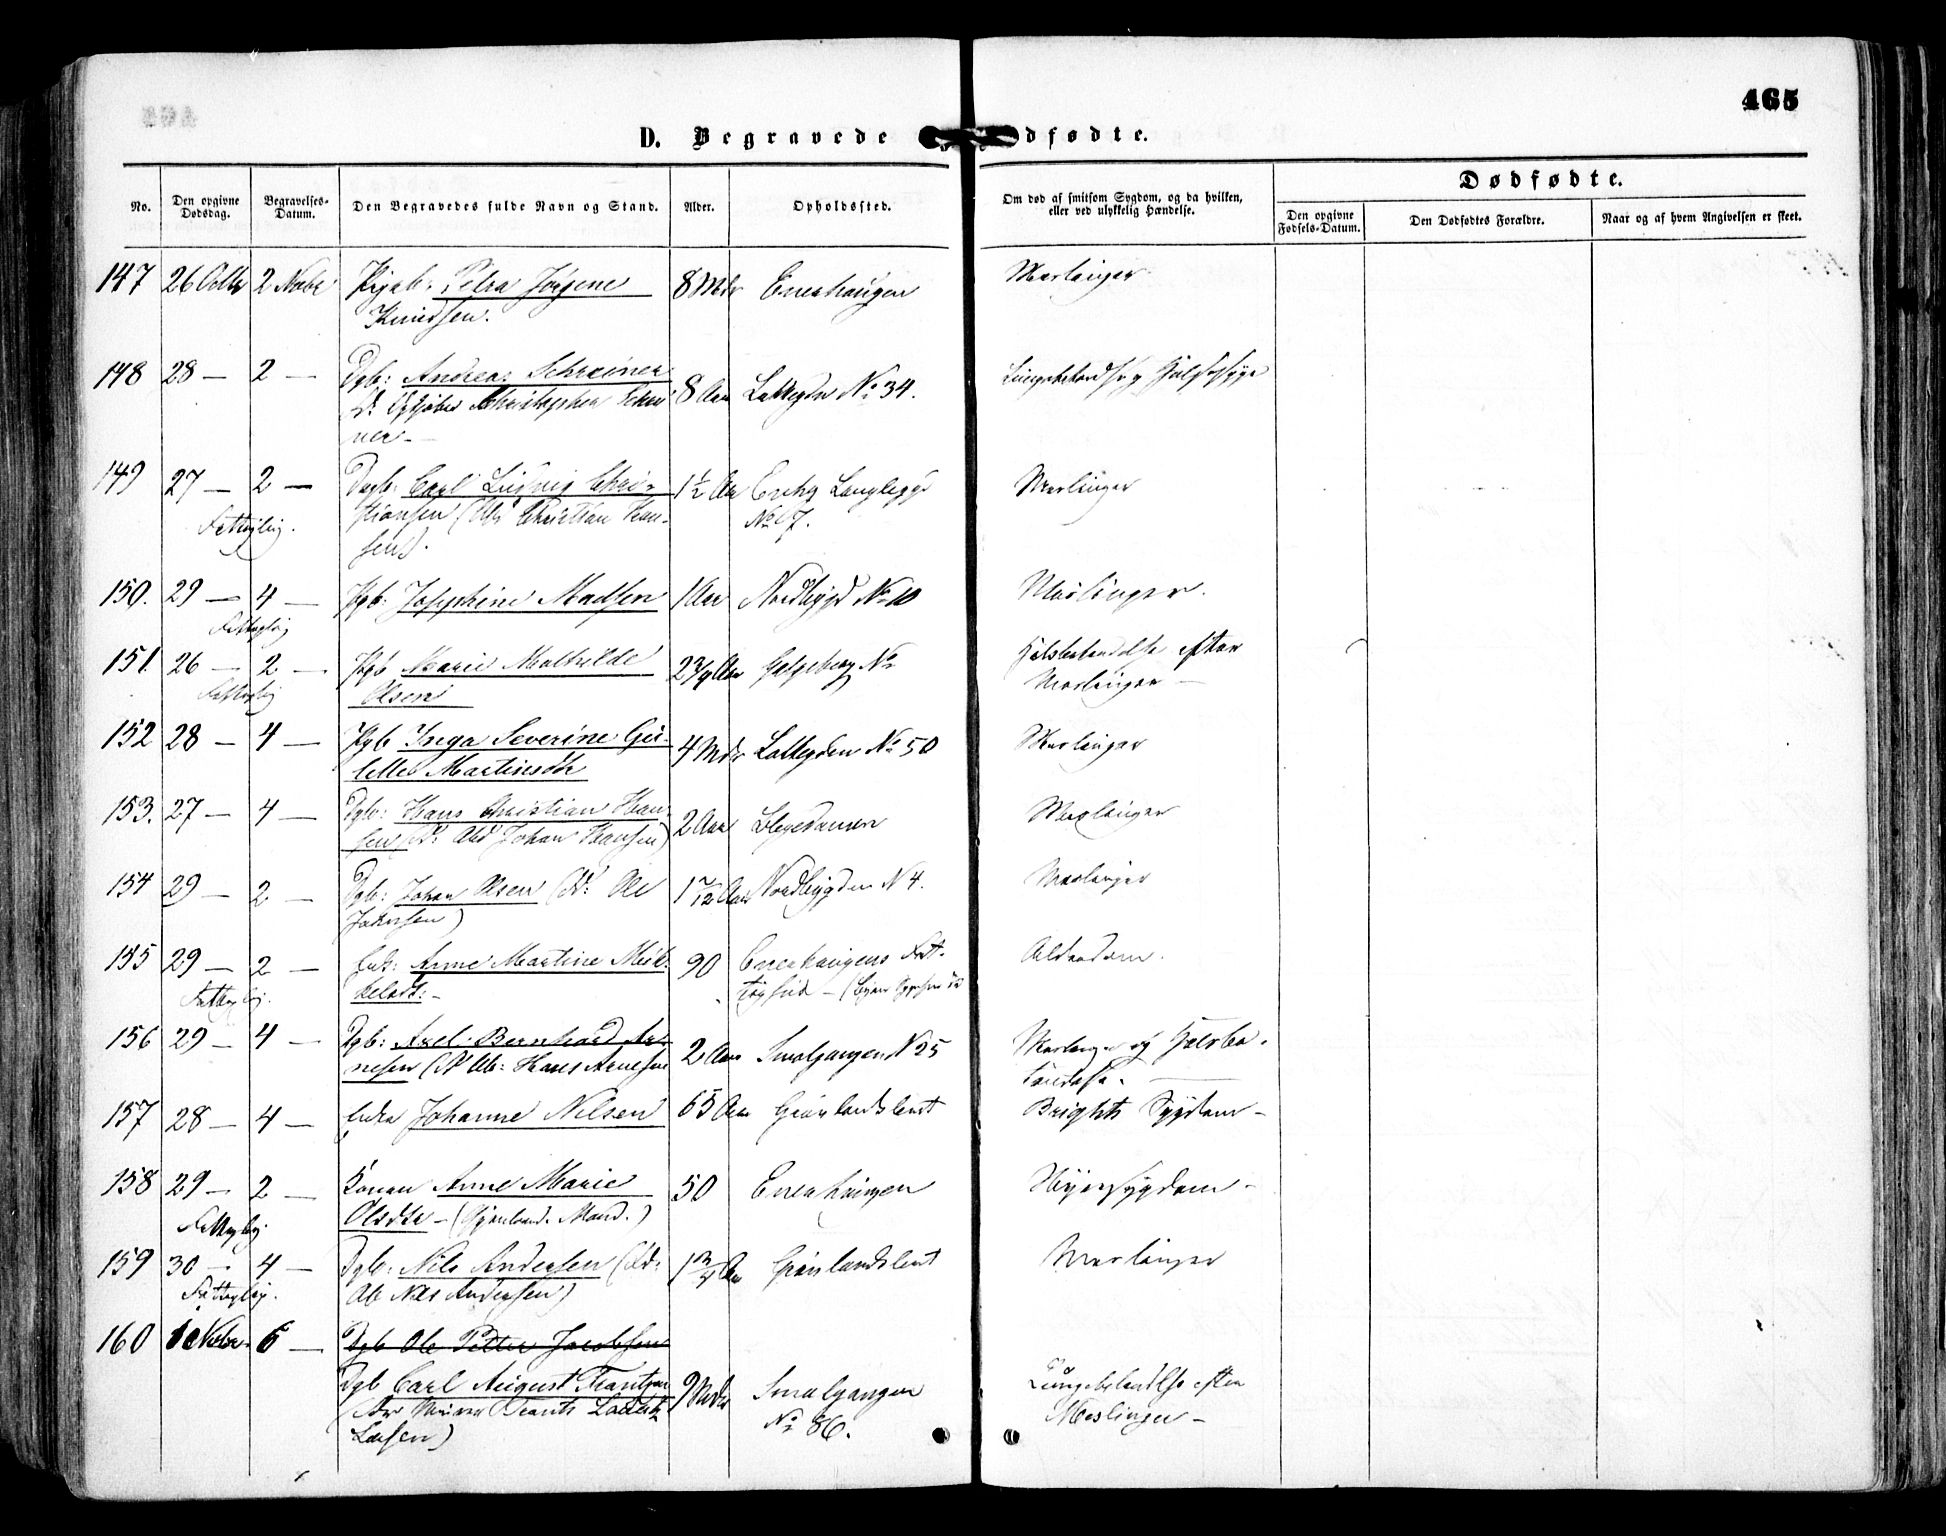 465
D. Begravede og Dødfødte.
No.
Den opgivne Dødsdag.
Begravelses-Datum.
Den Begravedes fulde Navn og Stand.
Alder.
Opholdssted.
Om død af smitsom Sygdom, og da hvilken, eller ved ulykkelig Hændelse.
Dødfødte.
Den opgivne Fødsels-Datum.
Den Dødfødtes Forældre.
Naar og af hvem Angivelsen er skeet.
147 26 Octbr 2 Novbr Pigeb: Petra Jørgine 8 Mdr Enerhaugen Meslinger
Knudsen.
148 28 — 2 — Dgb: Andreas Schreiner 8 Aar Lakkegdn No 34.
Christopher Schrei
ner —
149 27 — 2 — Dgb: Carl Ludvig Chri- 1½ Aar Enrhg Langleggd Meslinger
Fattiglig. stiansen (Christian Han- No 17.
sen).
150. 29 — 4 — Pgb: Josephine Madsen 1 Aar Nordbygd No 10 Meslinger.
Fattiglig
151. 26 — 2 — Pgb Marie Mathilde 2¾ Aar Galgeberg No Halsbetændelse efter
Fattiglig Olsen Meslinger —
152 28 — 4 — Pgb Inga Severine Gu- 4 Mdr Lakkegden No 50 Meslinger
Martinsdtr
153. 27 — 4 — Dgb: Hans Christian Han- 2 Aar Legedamen Meslinger
sen (Johan Hansen)
154 29 — 2 — Dgb: Johan Olsen (Ole 1 7/12 Aar Nordbygden N 4. Meslinger
Jakobsen)
155 29 — 2 — Enk: Anne Martine Mik- 90 Enerhaugens Fat- Alderdom.
Fattiglig. kelsdt: — tighus —
156 29 — 4 — Dgb: Axel Bernhard Ar- 2 Aar Smalgangen N 25 Meslinger og Halsbe-
nesen (Hans Arnesen tændelse. —
157 28 — 4 — Enke Johanne Nilsen 65 Aar Grønlandsleret Brights Sygdom —
158 29 — 2 — Konen Anne Marie 50 Enerhaugen
Fattiglig. Olsdtr — (Mand.)
159 30 — 4 — Dgb: Nils Andersen 1¾ Aar Grønlandsleret Meslinger
Fattiglig. Nils Andersen)
160 1 Novbr. 6 — Dgb Ole Petter Jacobsen
Dgb Carl August Frantzen 9 Mdr Smalgangen Lungebetændelse efter
(Frants No 86. Meslinger —
Larsen)